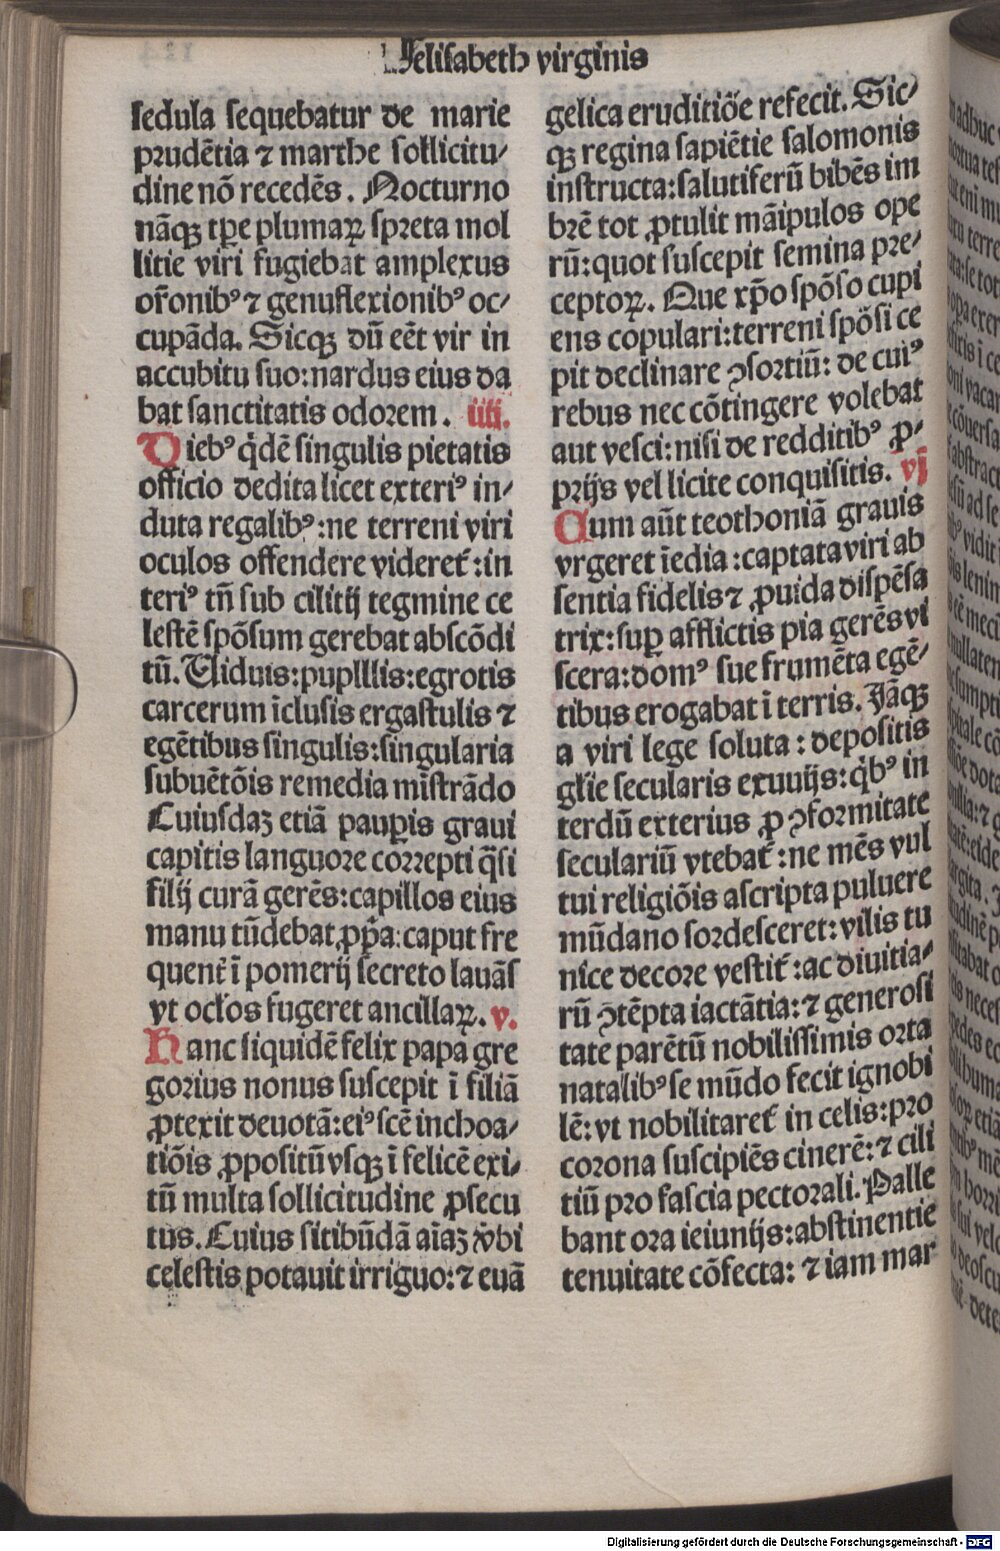 elisabeth virginis
sedula sequebatur de marie
prudētia ⁊ marthe sollicitu/
dine nō recedēs. Nocturno
nāqꝫ tꝑe plumaꝝ spreta mol
litie viri fugiebat amplexus
or̄onibꝰ ⁊ genuflexionibꝰ oc/
cupāda. Sicqꝫ dū eēt vir in
accubitu suo:nardus eius da
bat sanctitatis odorem. iiij.
Diebꝰ q̇dē singulis pietatis
officio dedita licet exteriꝰ in/
duta regalibꝰ:ne terreni viri
oculos offendere videret̄:in
teriꝰ tn̄ sub cilitij tegmine ce
lestē spōsum gerebat abscōdi
tū. Uiduis:puplllis:egrotis
carcerum īclusis ergastulis ⁊
egētibus singulis:singularia
subuētōis remedia mīstrādo
Cuiusdaꝫ etiā pauꝑis graui
capitis languore correpti q̄si
filij curā gerēs:capillos eius
manu tūdebat ꝓpͣa:caput fre
quent̄ ī pomerij secreto lauās
vt ocl̄os fugeret ancillaꝝ. v.
Hanc siquidē felix papa gre
gorius nonus suscepit ī filiā
ꝓtexit deuotā:eiꝰ scē inchoa/
tiōis ꝓpositū vsqꝫ ī felicē exi/
tū multa sollicitudine ꝓsecu
tus. Cuius sitibūdā aīaꝫ v̾bi
celestis potauit irriguo:⁊ euā
gelica eruditiōe refecit. Sic/
qꝫ regina sapiētie salomonis
instructa:salutiferū bibēs im
brē tot ꝓtulit māipulos ope
rū:quot suscepit semina pre/
ceptoꝝ. Que xp̄o spōso cupi
ens copulari:terreni spōsi ce
pit declinare ꝯsortiū: de cuiꝰ
rebus nec cōtingere volebat
aut vesci:nisi de redditibꝰ ꝓ/
prijs vel licite conquisitis. vj
Cum aūt teothoniā grauis
vrgeret īedia:captata viri ab
sentia fidelis ⁊ ꝓuida dispēsa
trix:suꝑ afflictis pia gerēs vi
scera:domꝰ sue frumēta egē/
tibus erogabat ī terris. Jāqꝫ
a viri lege soluta: depositis
gl̄ie secularis exuuijs:q̇bꝰ in
terdū exterius ꝓ ꝯformitate
seculariū vtebat̄:ne mēs vul
tui religiōis ascripta puluere
mūdano sordesceret:vilis tu
nice decore vestit̄:ac diuitia/
rū ꝯtēpta iactātia:⁊ generosi
tate parētū nobilissimis orta
natalibꝰ se mūdo fecit ignobi
lē:vt nobilitaret̄ in celis:pro
corona suscipiēs cinerē:⁊ cili
tiū pro fascia pectorali. Palle
bant ora ieiunijs:abstinentie
tenuitate cōfecta: ⁊ iam mar
Digitalisierung gefördert durch die Deutsche Forschungsgemeinschaft - DFG